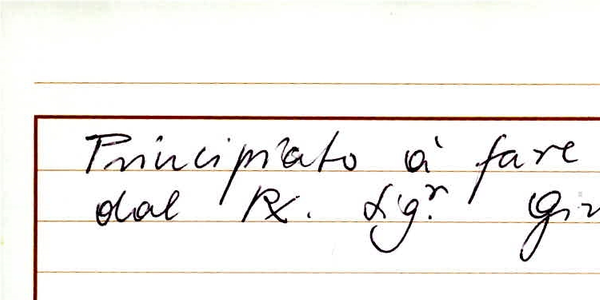 Principiato à fare
dal Rx. Sigr.